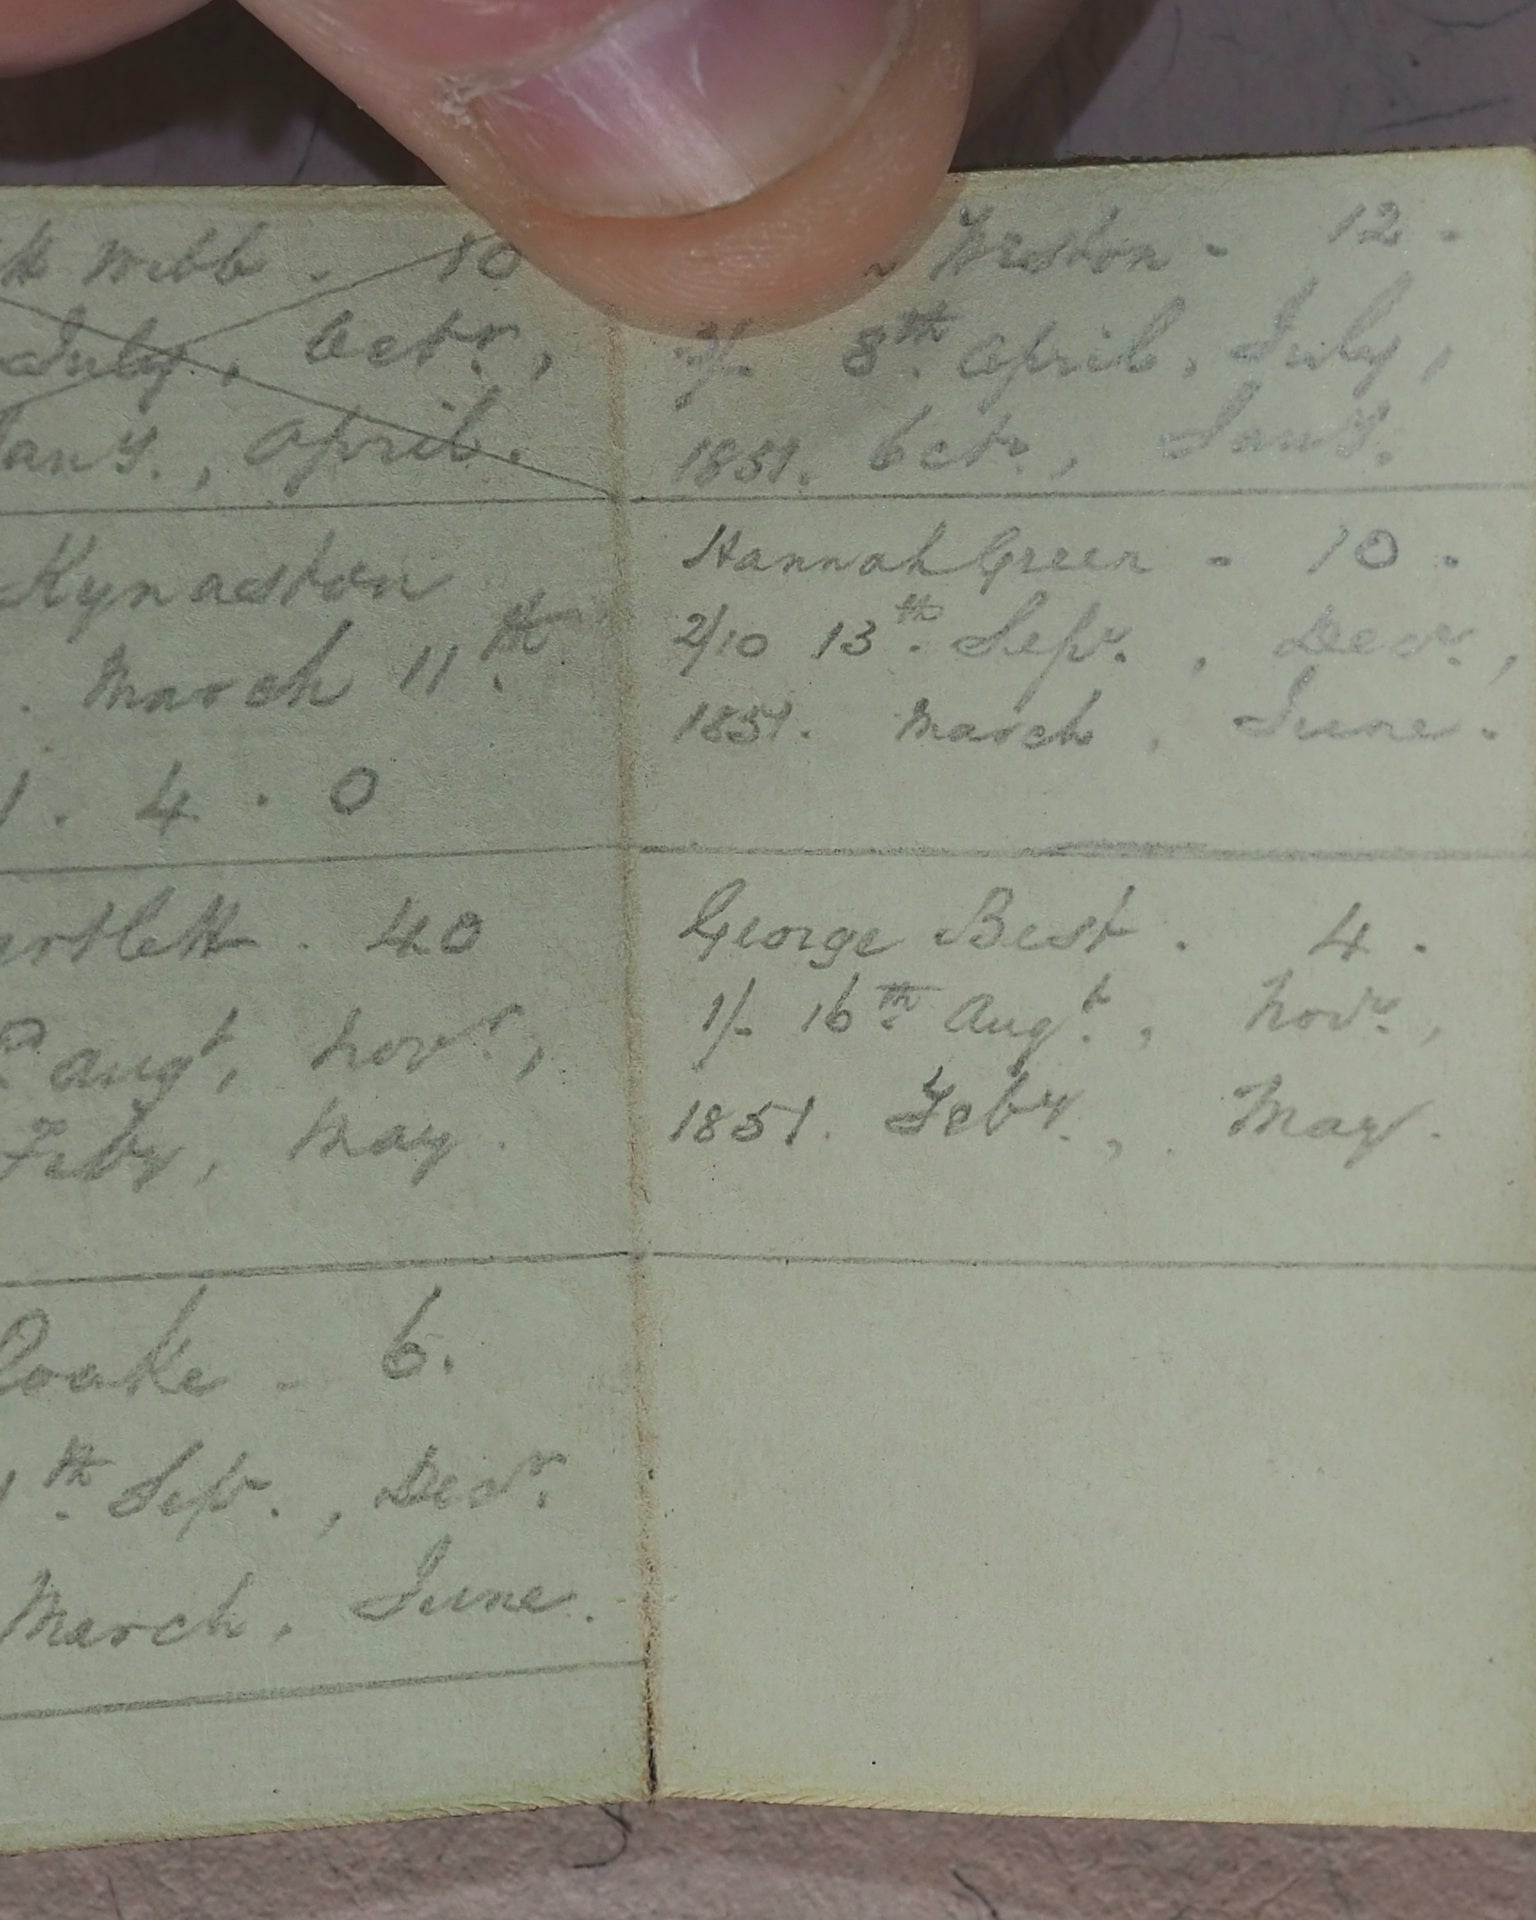 Webb - 10
July, Octr.,
Jany., April.
Kynaston
. March 11th.
1. 4. 0
artlett. 40
Augt, Novr.,
Feby, May.
Coake - 6.
1th. Sepr., Decr.
March, June.
Weston - 12 -
3/- 8th. April, July,
1851. Octr., Jany.
Hannah Green - 10 -
2/10 13th. Sepr., Decr.,
1851. March, June.
George Best. 4.
1/- 16th. Augt., Novr.,
1851. Feby., May.